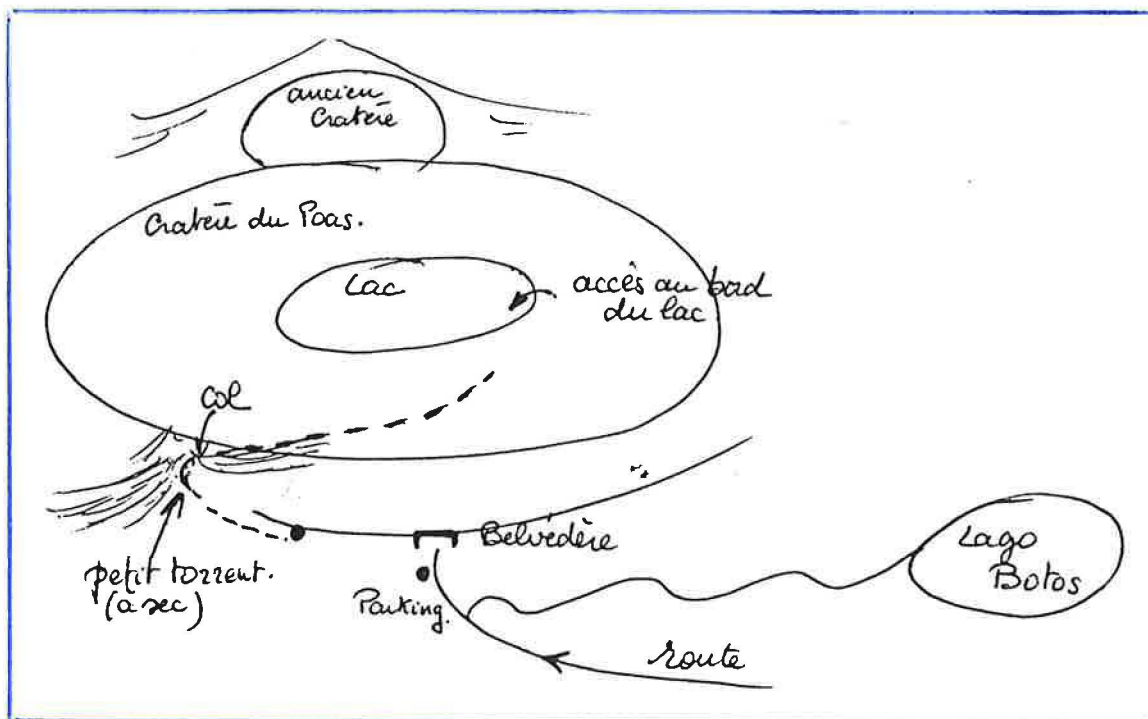 ancien
Cratère
Cratère du Poas.
Lac
accès au bord
du lac
Col
petit torrent.
(à sec)
Belvédère
Parking.
Lago
Botos
route